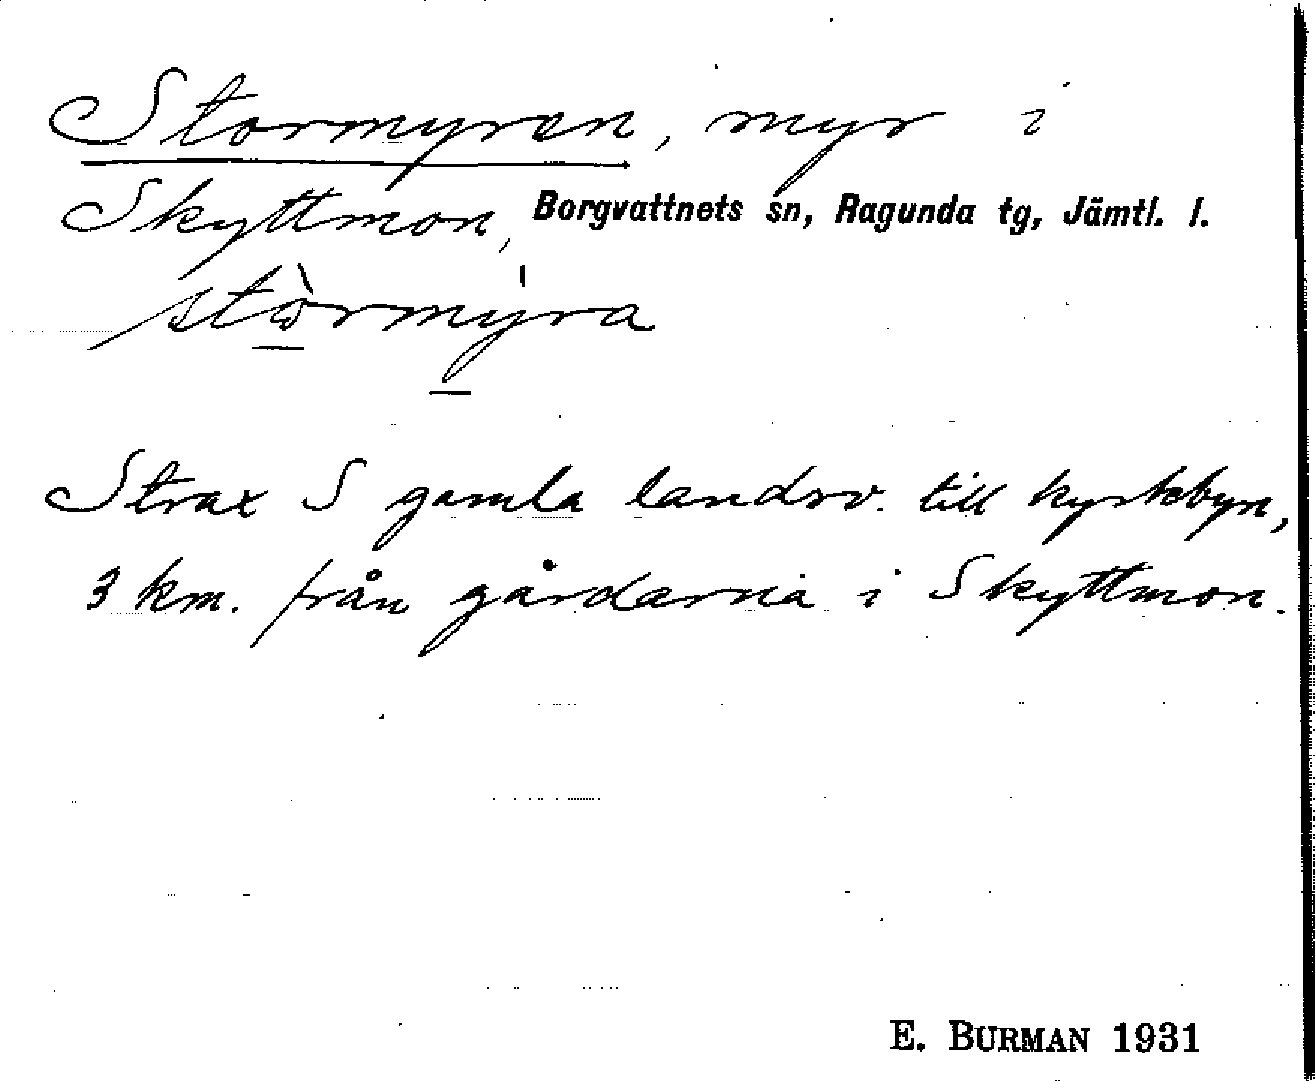 Stormyren, myr i
Skyttmon, Borgvattnets sn, Ragunda tg, Jämtl. l.
stòrmýra
Strax S gamla landsv. till kyrkbyn,
3 km. från gårdarna i Skyttmon.
E. BURMAN 1931